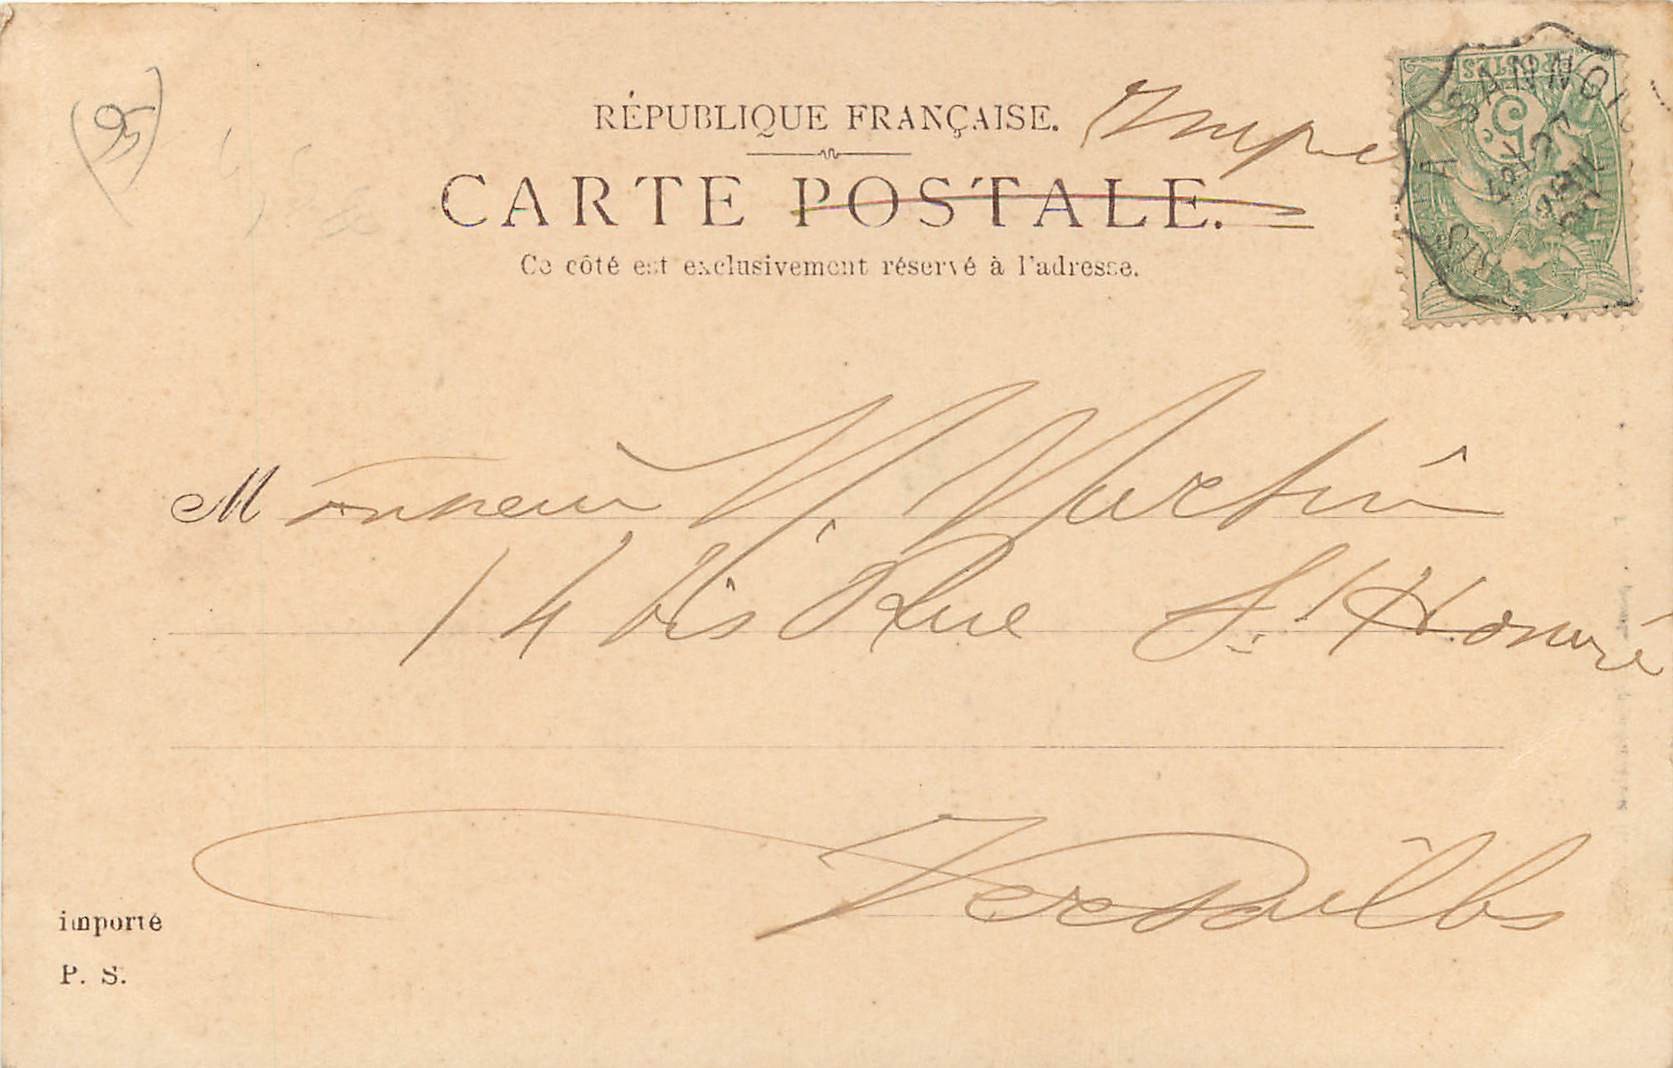 (95)
RÉPUBLIQUE FRANÇAISE.
Impe
CARTE POSTALE.
Ce côté est exclusivement réservé à l'adresse.
POSTES
5
SANNOIS A
Monsieur V. Martin
14 bis Rue St. Honoré
Versailles
importé
P. S.